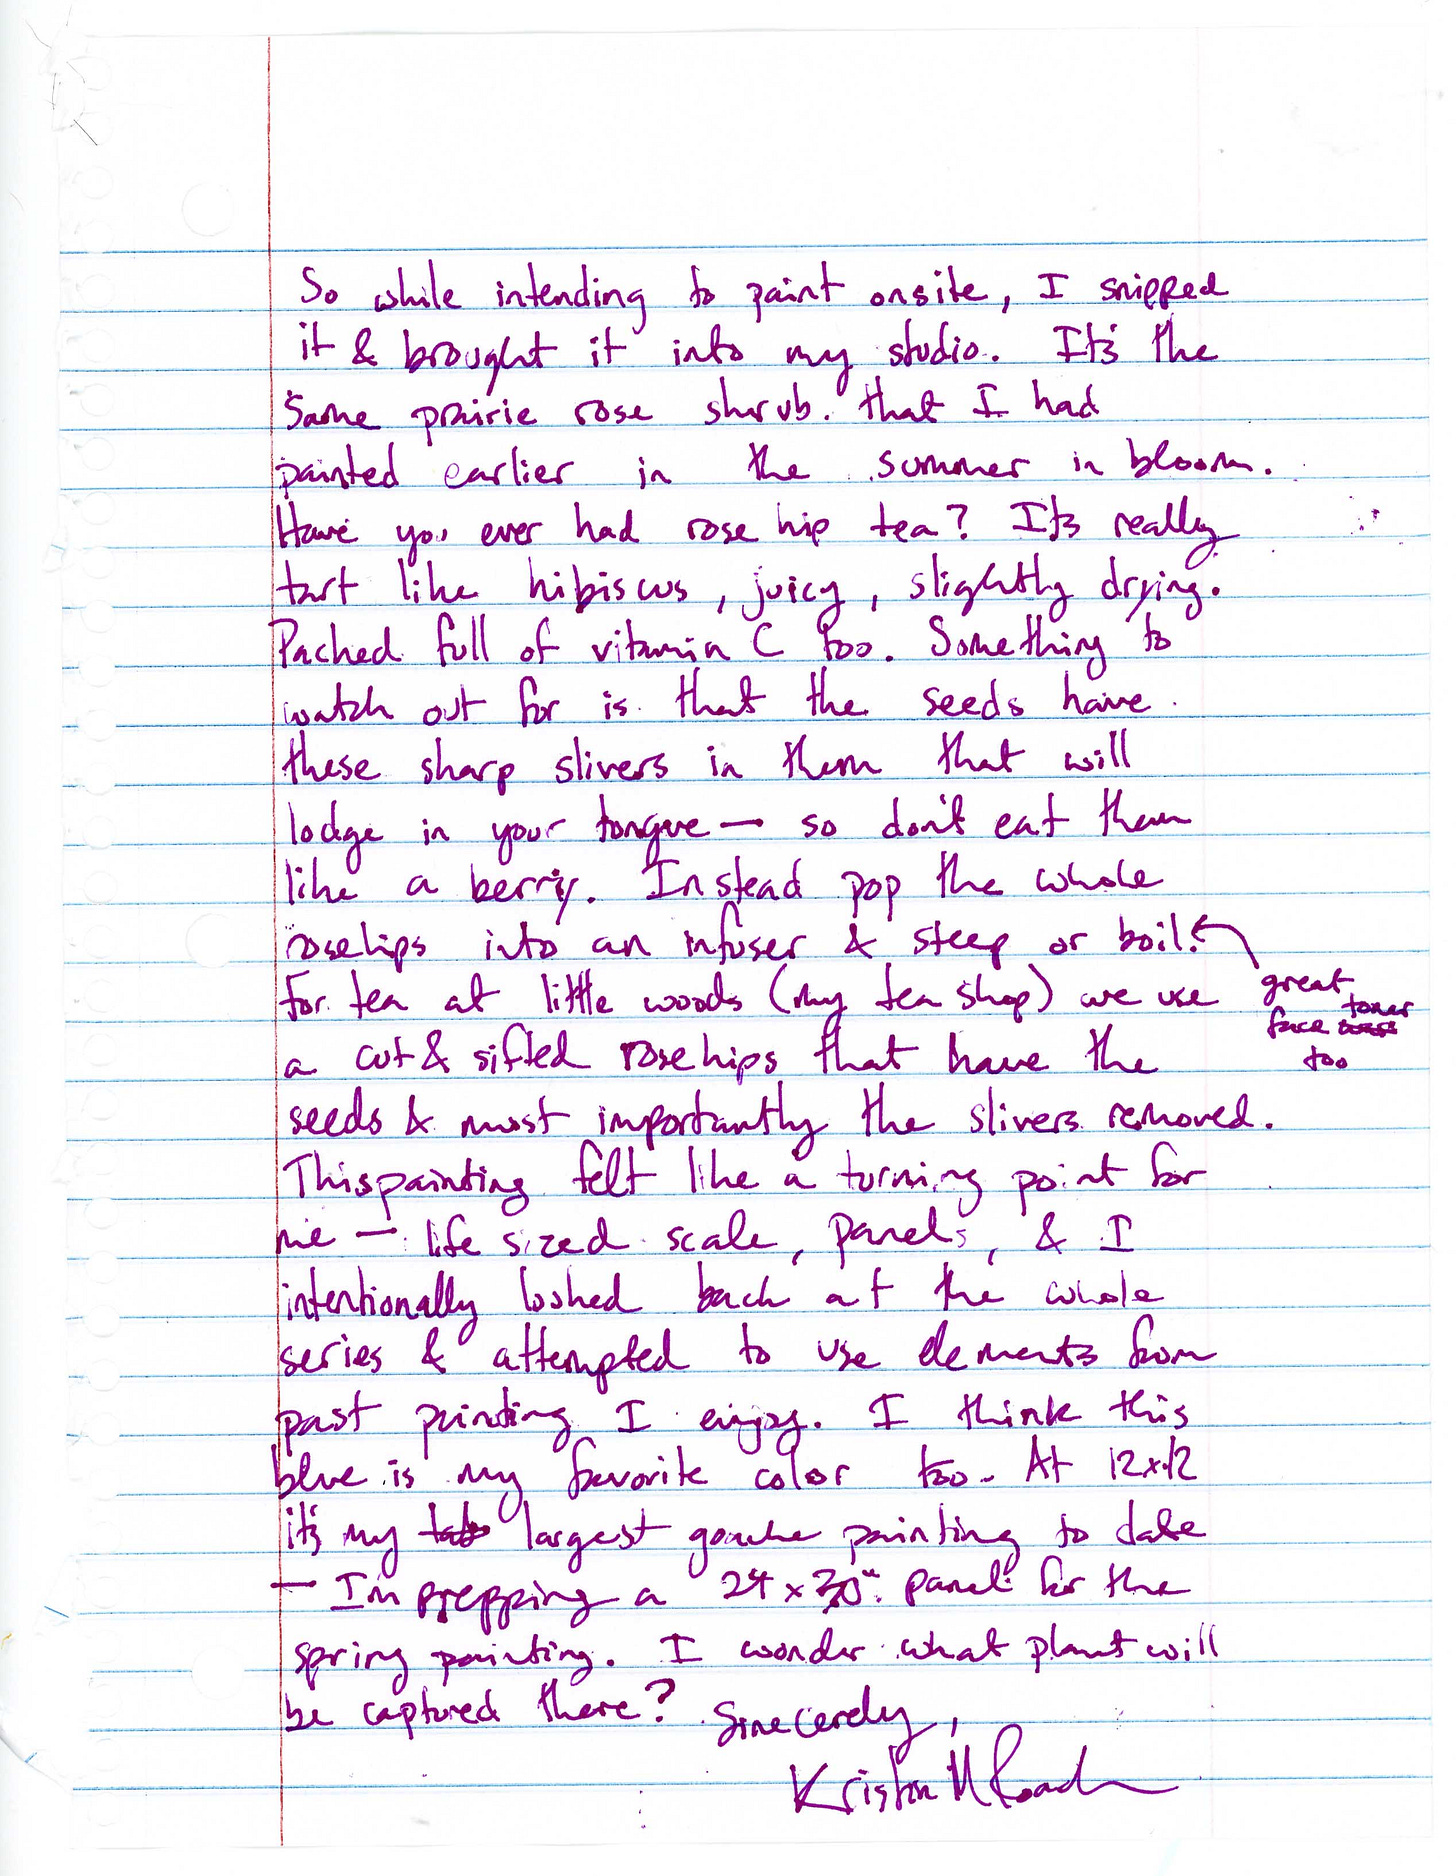 So while intending to paint onsite, I snipped
it & brought it into my studio. It's the
same prairie rose shrub that I had
painted earlier in the summer in bloom.
Have you ever had rose hip tea? It's really
tart like hibiscus, juicy, slightly drying.
Packed full of vitamin C too. Something to
watch out for is that the seeds have
these sharp slivers in them that will
lodge in your tongue — so don't eat them
like a berry. Instead pop the whole
rosehips into an infuser & steep or boil.
great
toner
face
too
For tea at little woods (my tea shop) we use
a cut & sifted rosehips that have the
seeds & most importantly the slivers removed.
This painting felt like a turning point for
me — life sized scale, panels, & I
intentionally looked back at the whole
series & attempted to use elements from
past painting I enjoy. I think this
blue is my favorite color too. At 12x12
it's my largest gouache painting to date
— I'm prepping a 24 x 30" panel for the
spring painting. I wonder what plant will
be captured there? Sincerely,
Kristin M Roach